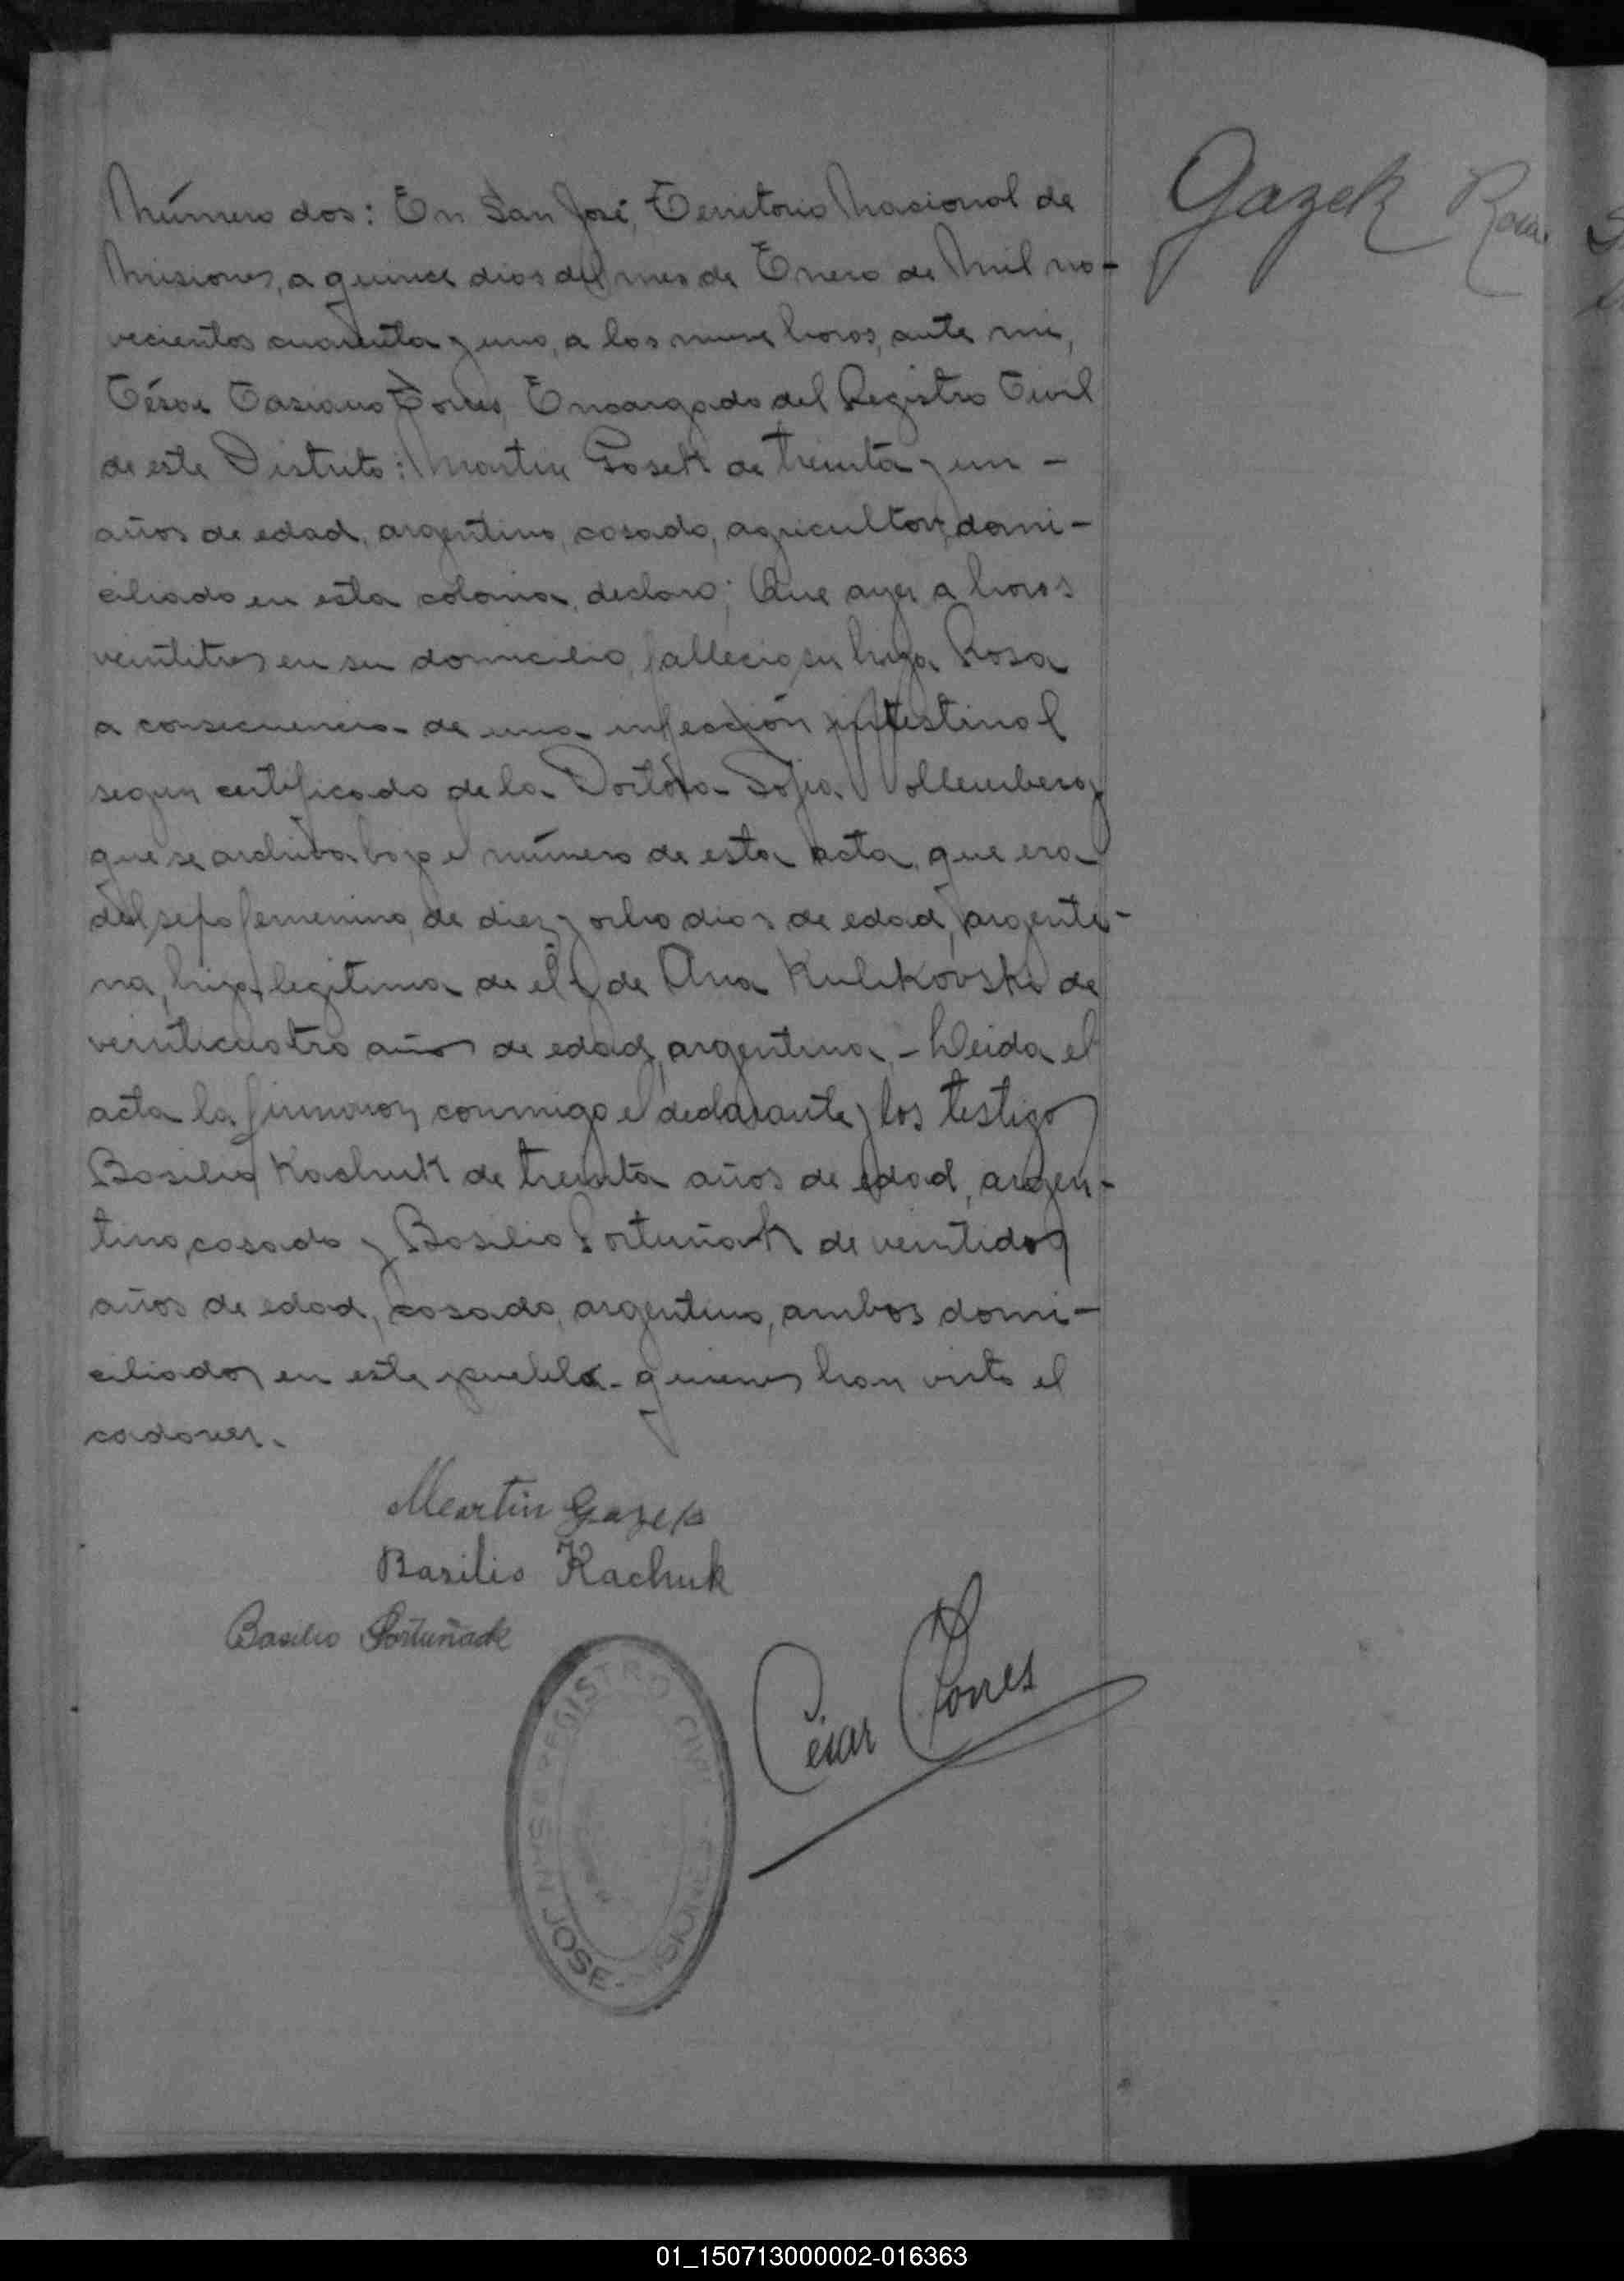 Gazek Rosa
Número dos: En San José, Territorio Nacional de
Misiones, a quince dias del mes de Enero de Mil no-
vecientos cuarenta y uno, a las nueve horas, ante mi,
César Casiano Torres, Encargado del Registro Civil
de este Distrito: Martin Gosek de treinta y un -
años de edad, argentino, casado, agricultor, domi-
ciliado en esta colonia, declaro; Que ayer a horas
veintitres en su domicilio, fallecio su hija Rosa
a consecuencia de una infección intestinal
segun certificado de la Doctora Sofia Wollemberg
que se archiva bajo el número de esta acta, que era
del sexo femenino, de diez y ocho dias de edad, argenti-
na, hija legitima de él y de Ana Kulikovski de
veinticuatro años de edad, argentina.- Leida el
acta la firmaron conmigo el declarante y los testigos
Basilio Kachuk de treinta años de edad, argen-
tino, casado y Basilio Portuñak de veintidos
años de edad, casado, argentino, ambos domi-
ciliados en este pueblo quienes han visto el
cadaver.
Martin Gazek
Basilio Kachuk
Basilio Portuñak
César Torres
REGISTRO CIVIL
SAN JOSE - MISIONES
01_150713000002-016363